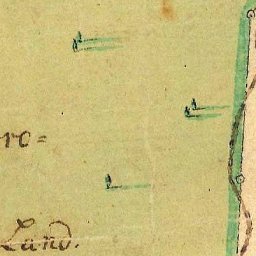 ro=
Land.